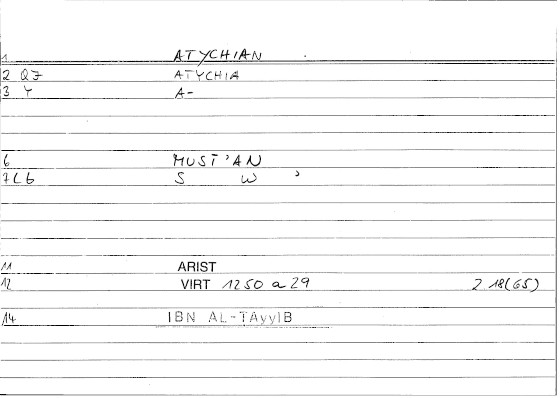 1 ATYCHIAN
2 Q7 ATYCHIA
3 Y A-
6 MUST'AN
7 C6 S W '
11 ARIST
12 VIRT 1250 a 29 2 18(65)
14 IBN AL-TAyyIB